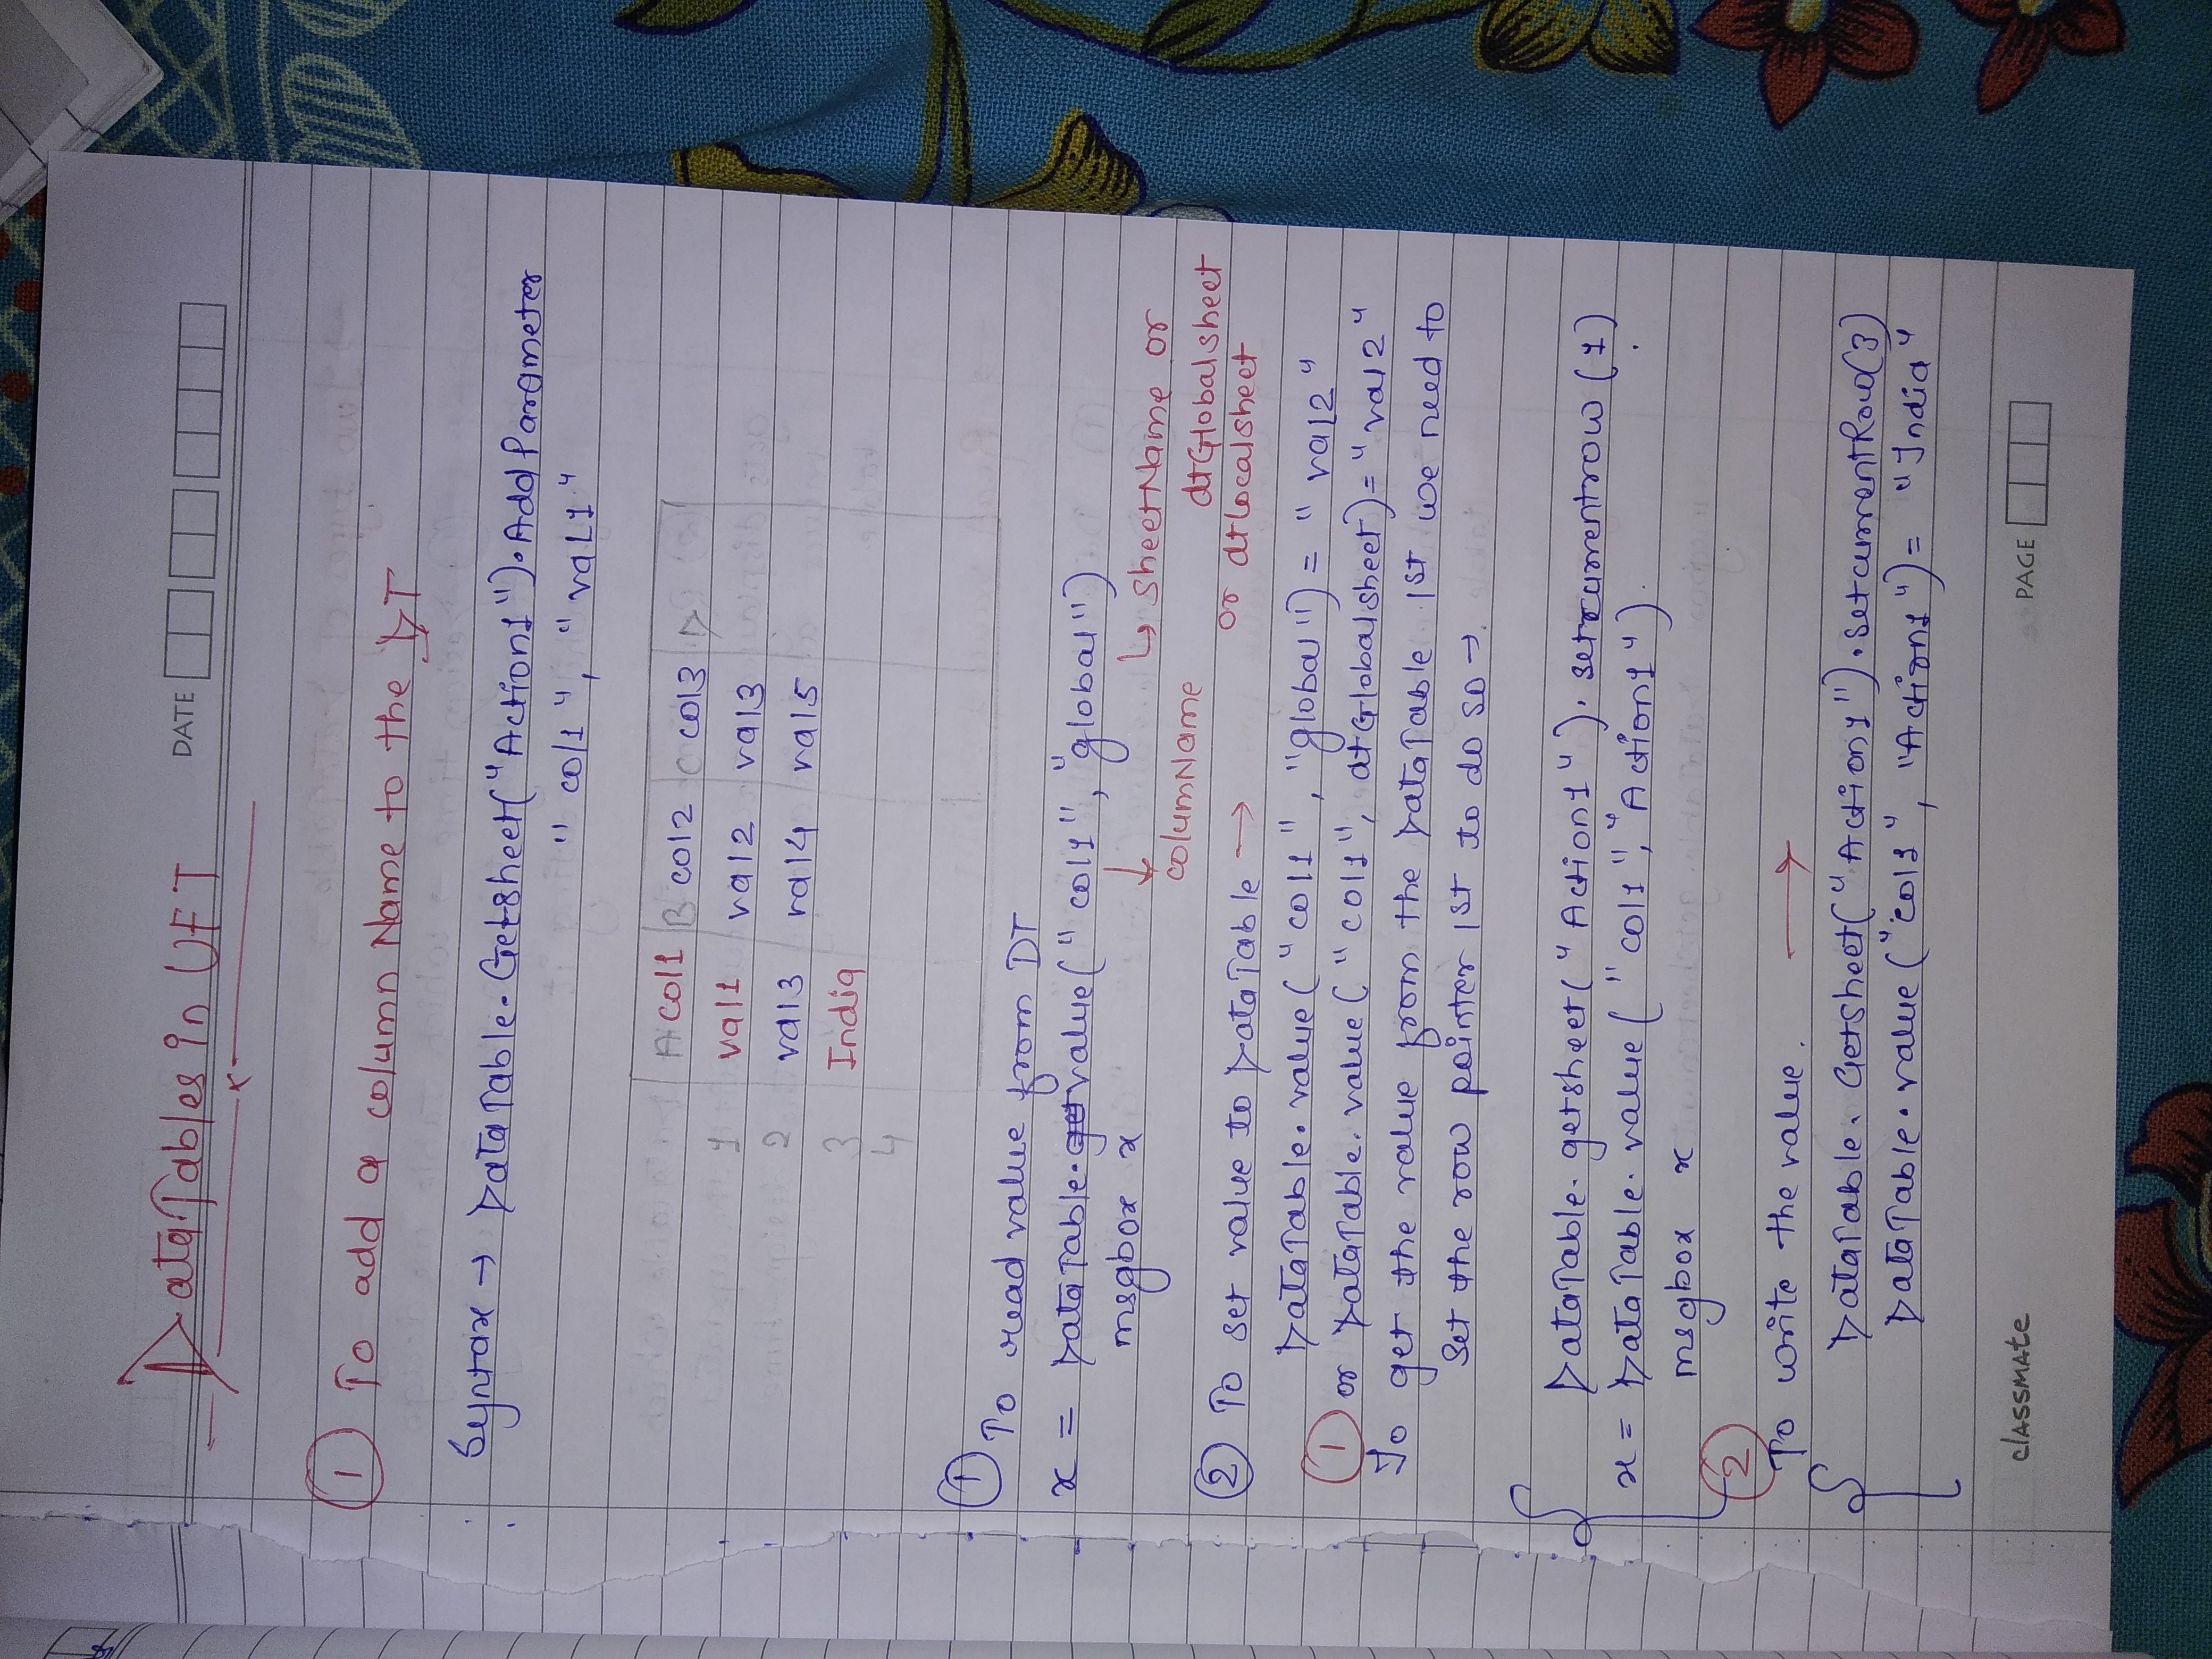 DATE
DataTables in UFT
① To add a column Name to the DT
Syntax → DataTable.GetSheet("Action1").AddParameter
"col1", "val1"
A col1 B col2 C col3 D
1 val1 val2 val3
2 val3 val4 val5
3 India
4
① To read value from DT
x = DataTable.value("col1","global")
↳ SheetName or
msgbox x
↓ columnName
dtGlobalsheet
or dtlocalsheet
② To set value to DataTable →
DataTable.value("col1","global") = "val2"
① or DataTable.value("col1",dtGlobalsheet)="val2"
To get the value from the DataTable 1st we need to
Set the row pointer 1st to do so →
DataTable.getsheet("Action1").setcurrentrow(1)
x = DataTable.value("col1","Action1")
msgbox x
② To write the value. →
DataTable.GetSheet("Action1").SetcurrentRow(3)
DataTable.value("col1","Action1") = "India"
classmate
PAGE